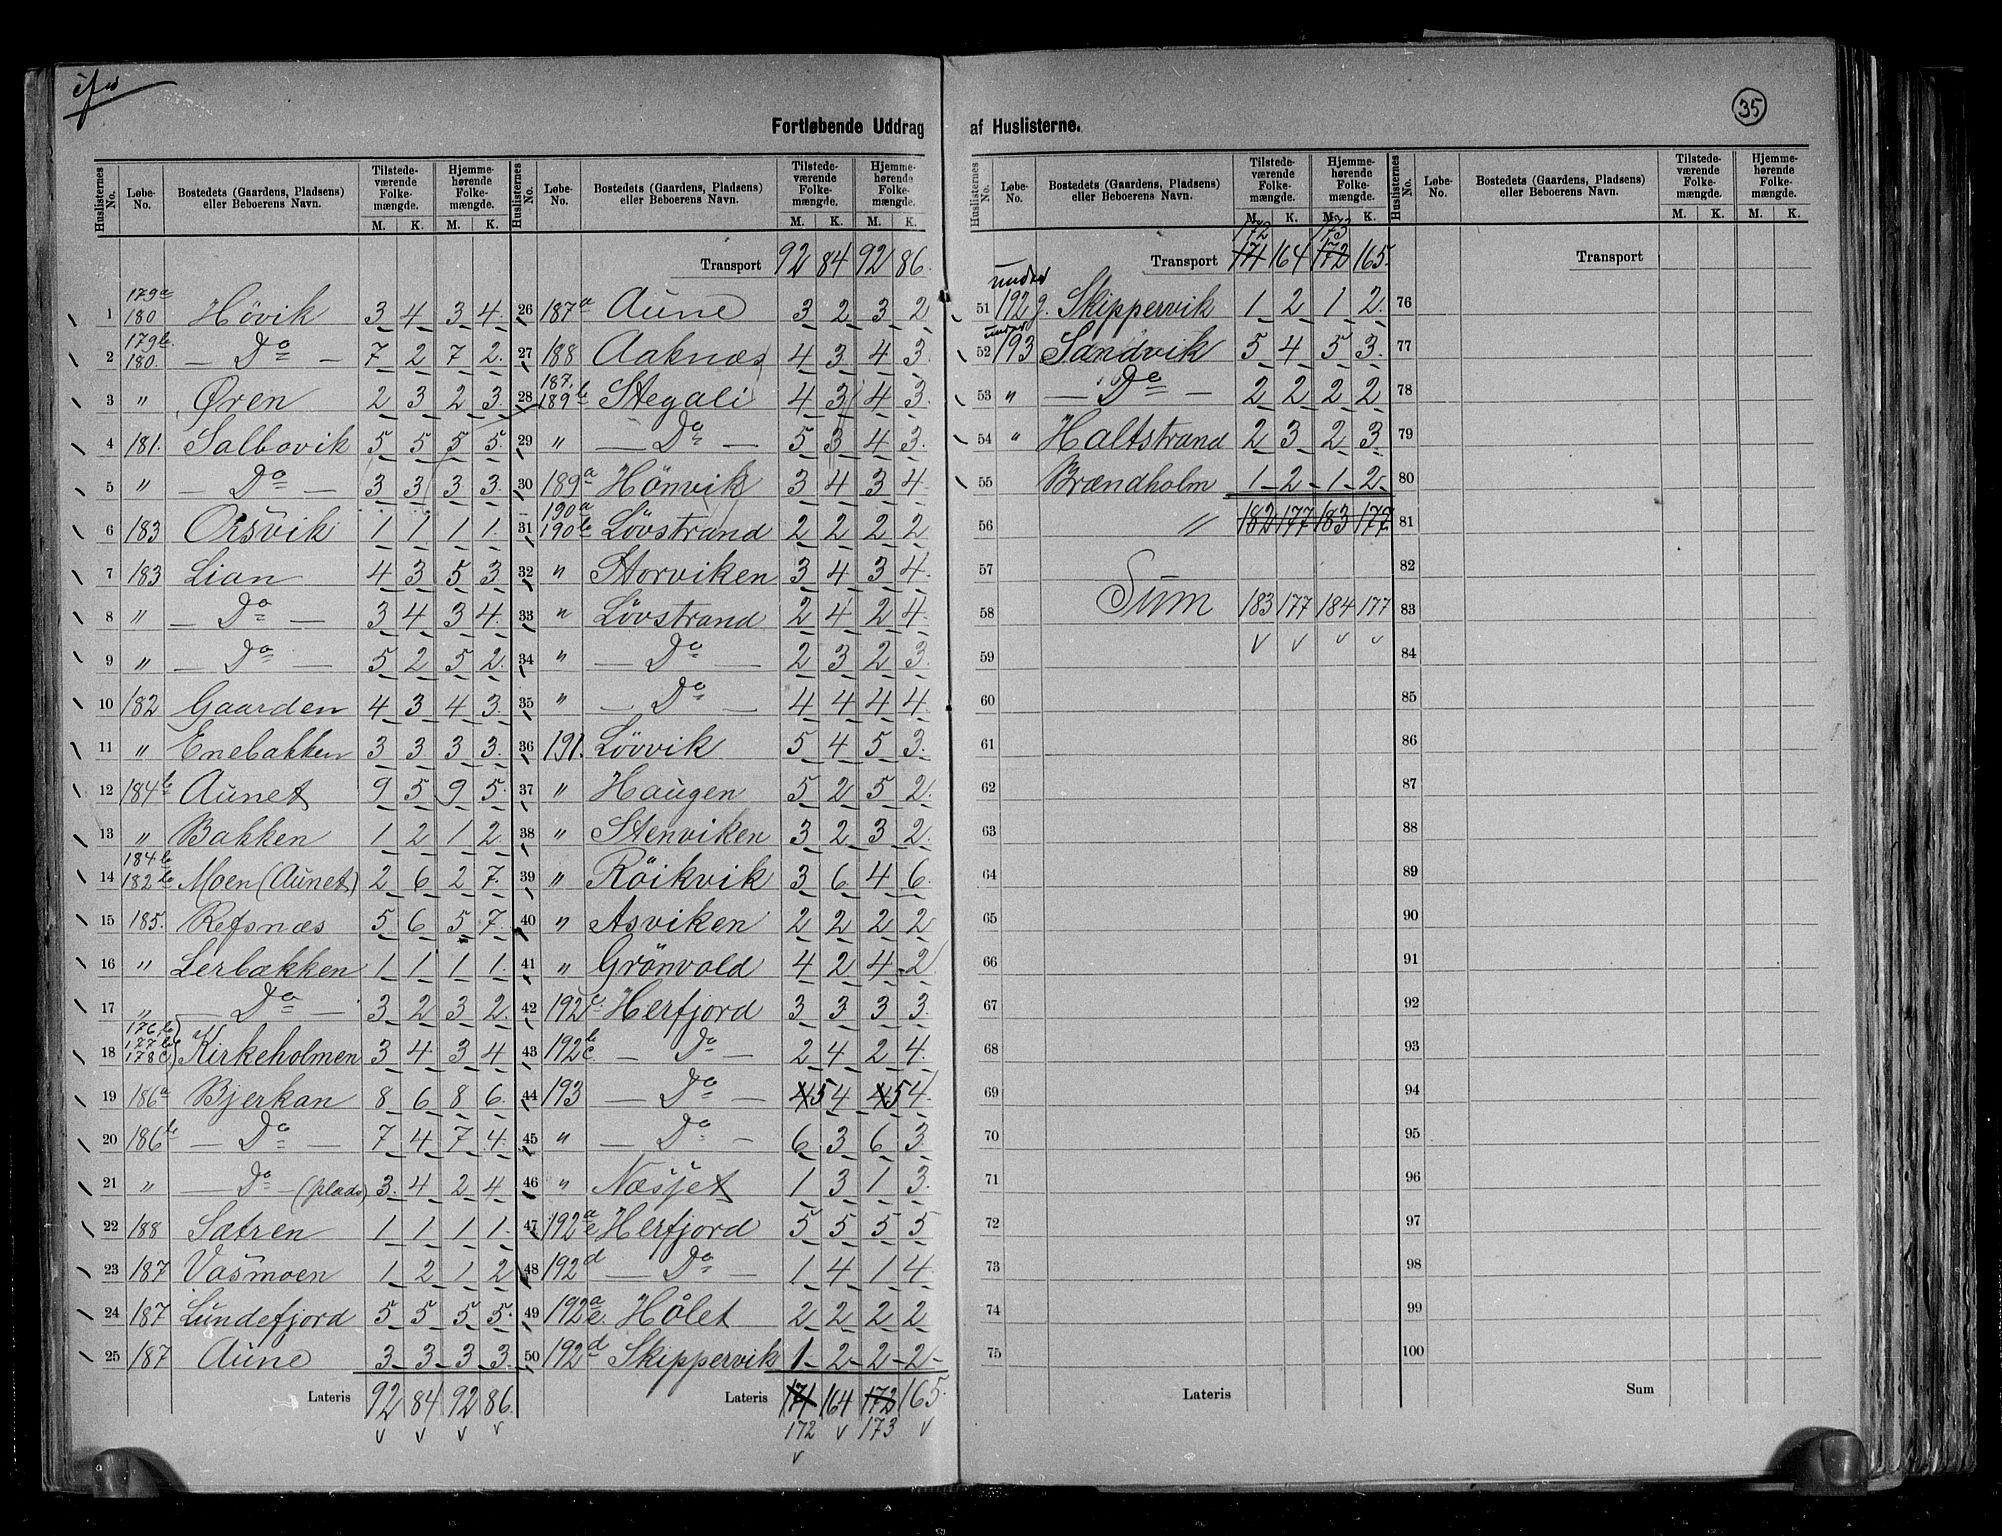 35
Fortløbende Uddrag af Huslisterne.
Huslisternes No. Løbe-No. Bostedets (Gaardens, Pladsens) eller Beboerens Navn. Tilstedeværende Folkemængde. M. K. Hjemmehørende Folkemængde. M. K.
1 179a 180 Høvik 3 4 3 4
2 179b 180. — Do — 7 2 7 2.
3 " Øren 2 3 2 3.
4 181. Salbovik 5 5 5 5.
5 " — Do — 3 3 3 3
6 183 Orsvik 1 1 1 1.
7 183 Lian 4 3 5 3
8 " — Do — 3 4 3 4.
9 " — Do — 5 2 5 2.
10 182 Gaarden 4 3 4 3.
11 " Enebakken 3 3 3 3.
12 184b Aunet 9 5 9 5.
13 " Bakken 1 2 1 2.
14 184b 182b Moen (Aunet) 2 6 2 7.
15 185. Refsnæs 5 6 5 7.
16 " Lerbækken 1 1 1 1.
17 " — Do — 3 2 3 2.
18 176b 177b 178c Kirkeholmen 3 4 3 4
19 186a Bjerkan 8 6 8 6.
20 186b — Do — 7 4 7 4.
21 " — Do — (plads) 3. 4 2 4
22 188 Sætren 1 1 1 1.
23 187 Vasmoen 1 2 1 2
24 187 Lundefjord 5 5 5 5.
25 187 Aune 3 3 3 3.
Lateris 92 84 92 86.
Huslisternes No. Løbe-No. Bostedets (Gaardens, Pladsens) eller Beboerens Navn. Tilstedeværende Folkemængde. M. K. Hjemmehørende Folkemængde. M. K.
Transport 92 84 92 86.
26 187a Aune 3 2 3 2
27 188 Aaknæs 4 3 4 3.
28 187, 189b Stegali 4 3 4 3.
29 " — Do — 5 3 4 3.
30 189a Hönvik 3 4 3 4.
31 190a 190b Lövstrand 2 2 2 2
32 " Storviken 3 4 3 4.
33 " Lövstrand 2 4 2 4.
34 " — Do — 2 3 2 3.
35 " — Do — 4 4 4 4.
36 191. Lövvik 5 4 5 3.
37 " Haugen 5 2 5 2.
38 " Stenviken 3 2 3 2.
39 " Röikvik 3 6 4 6.
40 " Asviken 2 2 2 2
41 " Grönvold 4 2 4 2.
42 192c. Herfjord 3 3 3 3.
43 192b c. — Do — 2 4 2 4.
44 193 — Do — 4 5 4 4 5 4.
45 " — Do — 6 3 6 3.
46 " Næsjet 1 3 1 3.
47 192a e Herfjord 5 5 5 5
48 192d — Do — 1 4 1 4.
49 192a e. Hålet 2 2 2 2
50 192d Skippervik 1 2 2 2
Lateris 171 164 172 165.
172 173
Huslisternes No. Løbe-No. Bostedets (Gaardens, Pladsens) eller Beboerens Navn. Tilstedeværende Folkemængde. M. K. Hjemmehørende Folkemængde. M. K.
172 173
Transport 171 164 172 165.
51 under 192g. Skippervik 1 2 1 2.
52 under 193 Sandvik 5 4 5 3.
53 " — Do — 2 2 2 2
54 " Haltstrand 2 3 2 3
55 Brændholm 1 2 1 2
56 " 182 177 183 177
57
58 Sum 183 177 184 177
59
60
61
62
63
64
65
66
67
68
69
70
71
72
73
74
75
Lateris
Huslisternes No. Løbe-No. Bostedets (Gaardens, Pladsens) eller Beboerens Navn. Tilstedeværende Folkemængde. M. K. Hjemmehørende Folkemængde. M. K.
Transport
76
77
78
79
80
81
82
83
84
85
86
87
88
89
90
91
92
93
94
95
96
97
98
99
100
Sum